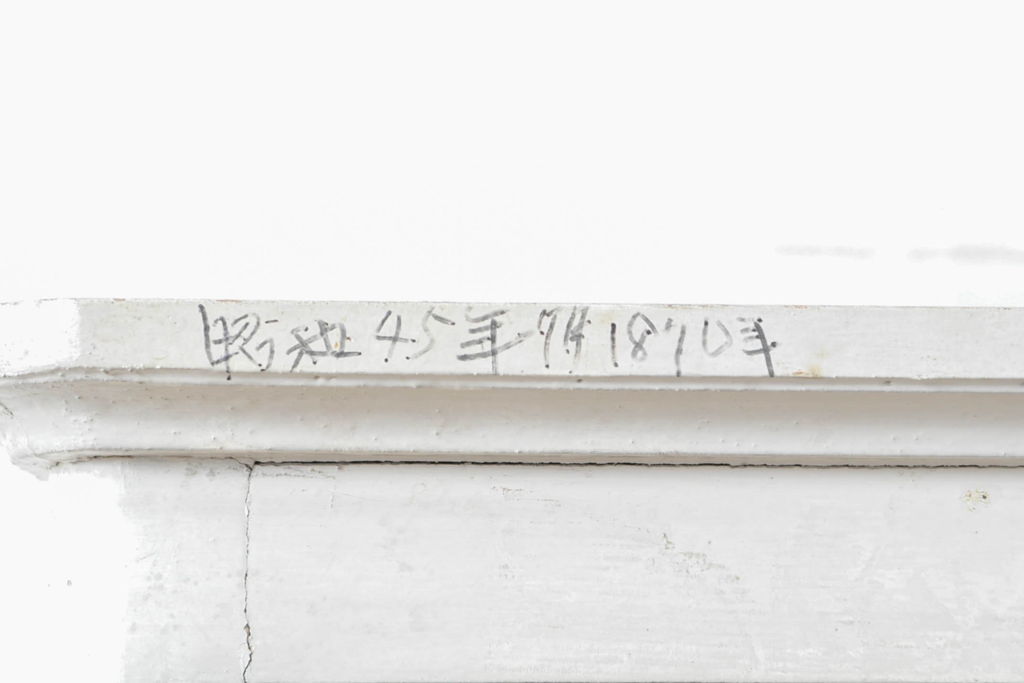 昭和45年 1870年